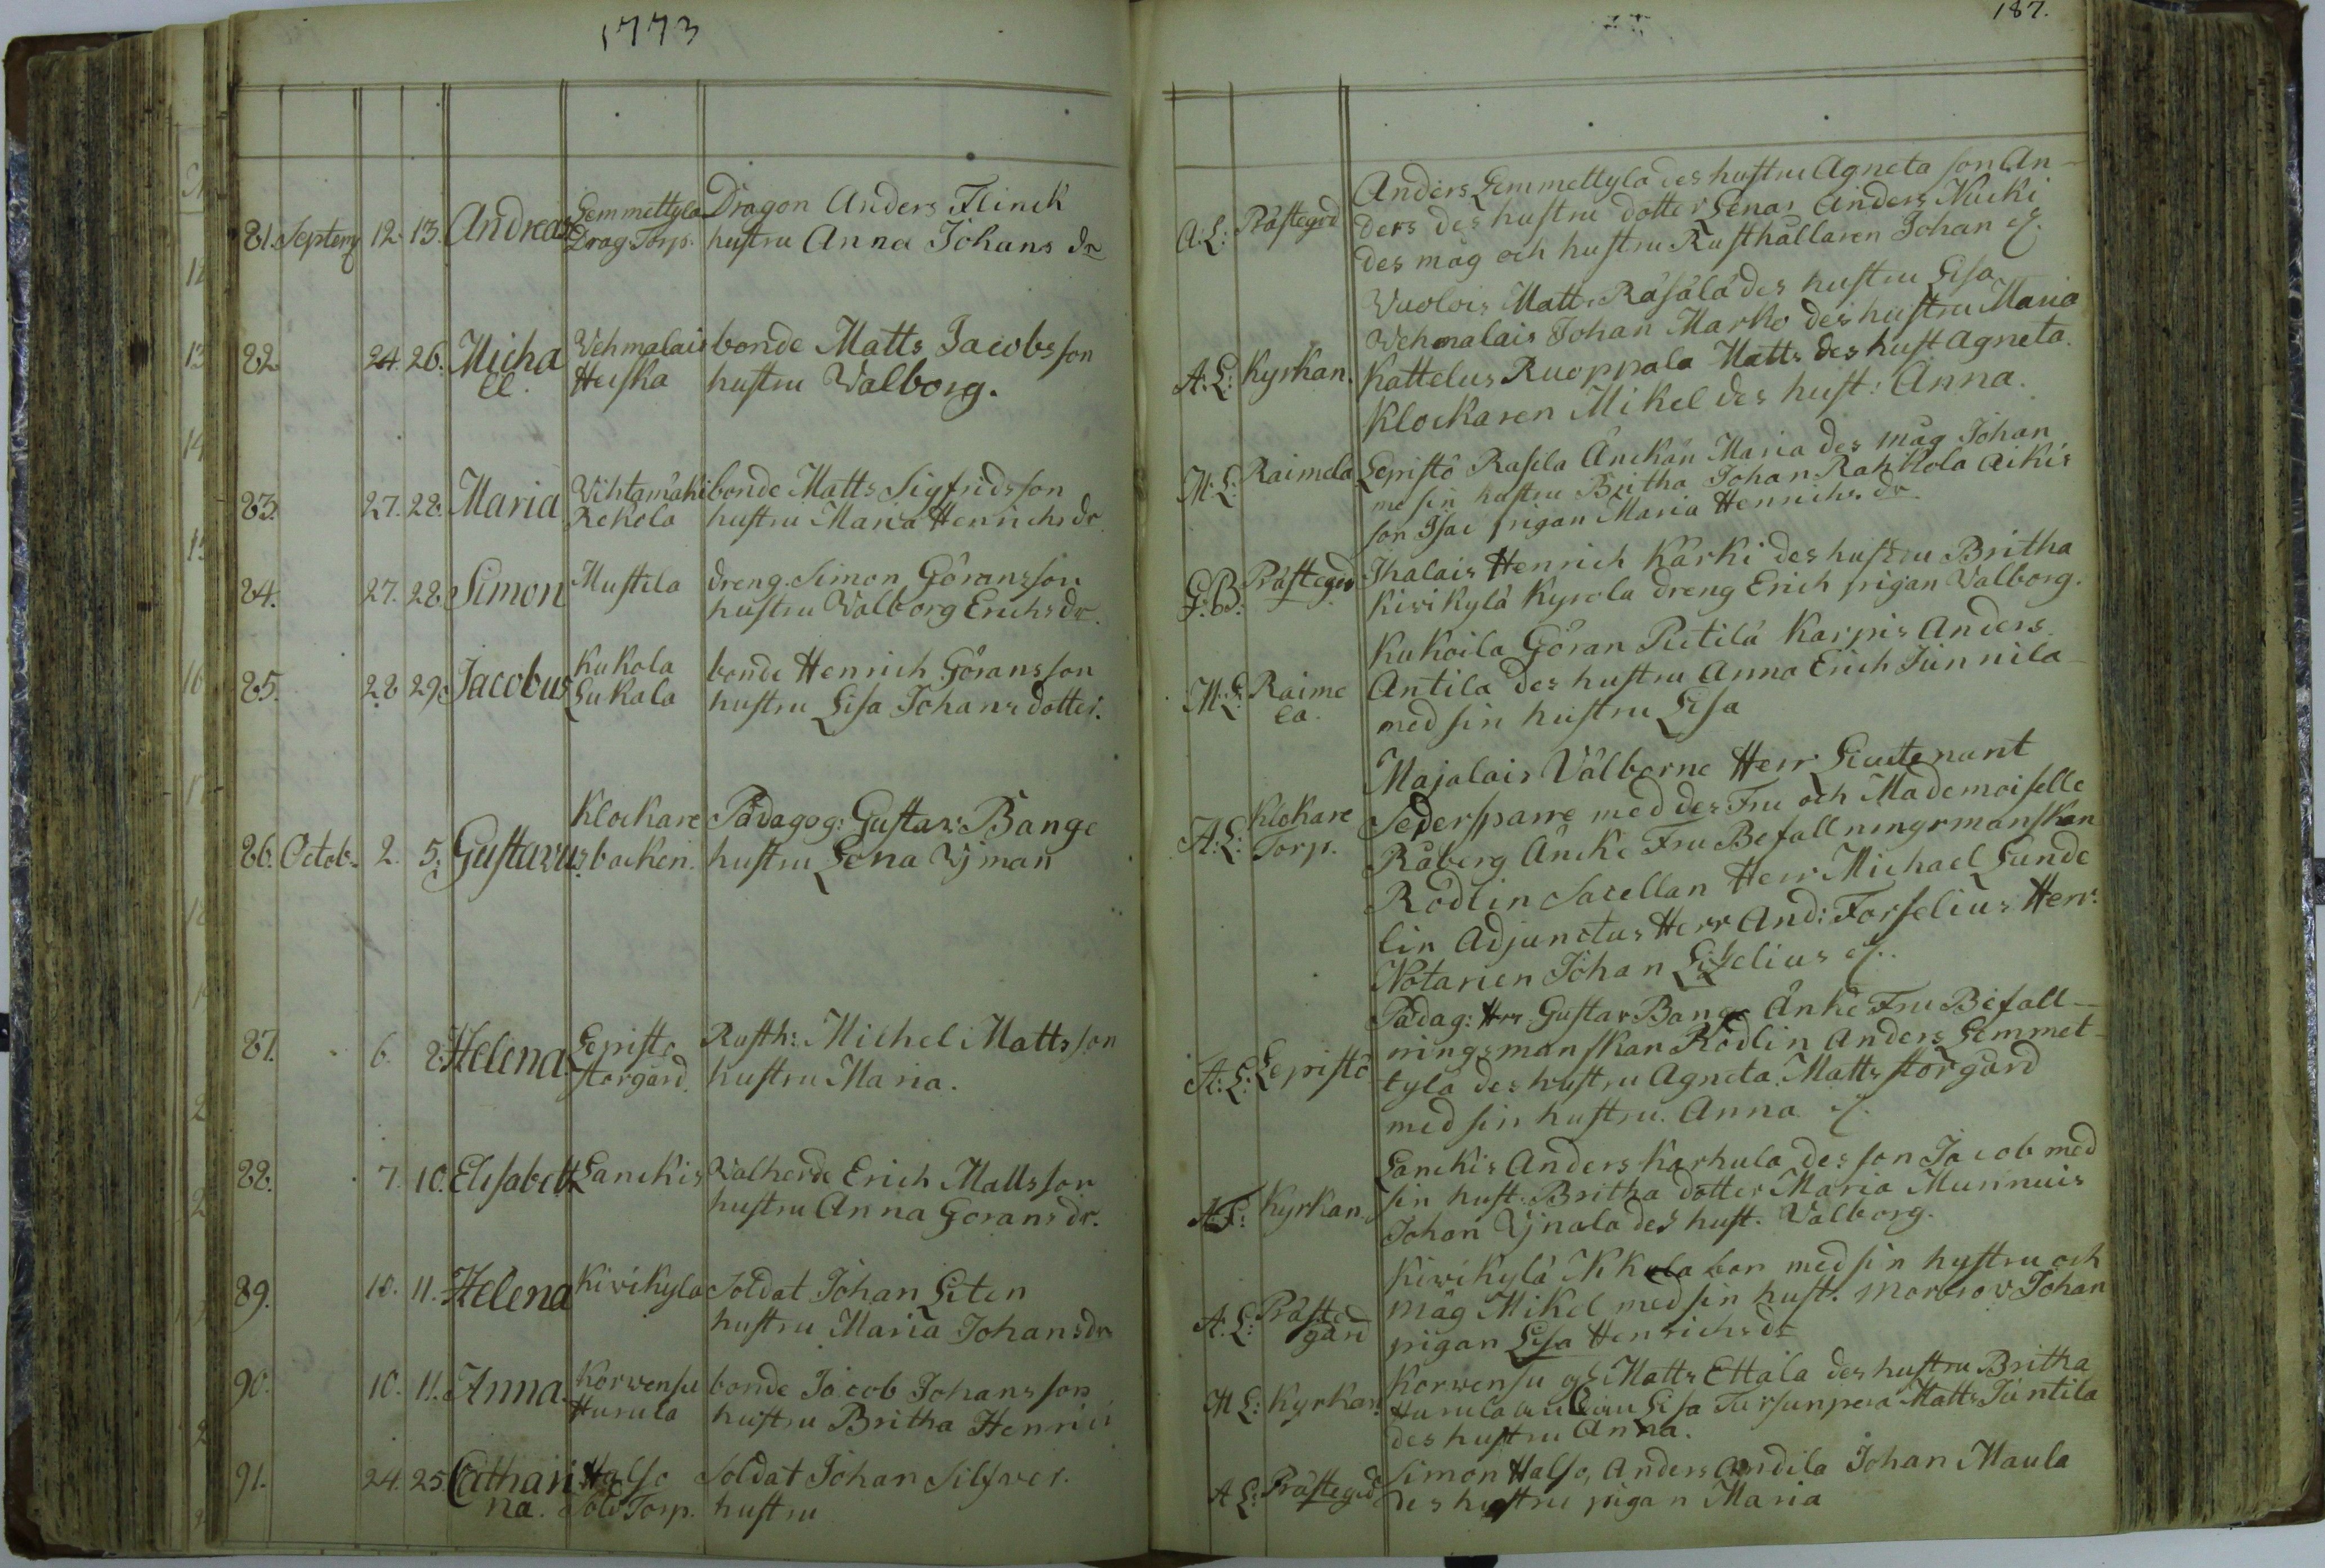 1773
81. Septemb 12. 13. Andreas Lemmettyla Dragon Anders Flinck
Drag Torp. hustru Anna Johans dr
82. 24. 26. Micha Vehmalais bonde Matts Jacobsson
el. Heiska hustru Valborg.
83. 27. 28. Maria Vihtamäki bonde Matts Sigfridsson
Rekola hustru Maria Henrichsdr
84. 27. 28. Simon Mustila dreng. Simon Göransson
hustru Valborg Erichsdr.
85. 28 29. Jacobus Kukola bonde Henrich Göransson
Lukala hustru Lisa Johans dotter.
86. Octob. 2. 5. Gustavus Klockare Pädagog: Gustav: Bange
backen. hustru Lena Wiman
87. 6. 8. Helena Lepistö Rusth: Michel Mattsson
storgård. hustru Maria.
88. 7. 10. Elisabett Lanckis Valherde Erich Mattsson
hustru Anna Göransdr.
89. 10. 11. Helena Kivikyla Soldat Johan Liten
hustru Maria Johansdr
90. 10. 11. Anna. Korvensu bonde Jacob Johansson
Hurula hustru Britha Henrics
91. 24. 25. Cathari Halso Soldat Johan Silfver.
na. Sold Torp. hustru
187.
Anders Lemmettylä des hustru Agneta son An-
A: L: Prästegrd ders des hustru dotter Lena, Anders Nucki
des måg och hustru Rusthållaren Johan
Vuolois Matts Räsälä des hustru Lisa
Vehmalais Johan Marko des hustru Maria
A: L: Kyrkan. Kattelus Ruoppala Matts des hust Agneta.
Klockaren Mikel des hust: Anna.
M: L: Raimela Lepistö Rasila Änckan Maria des måg Johan
me sin hustru Britha Johan Rakkola Aikis
son Isac pigan Maria Henrichs. dr
G: B: Prästegrd Ihalais Henrich Kärki des hustru Britha
Kivikylä Kyrola dreng Erich pigan Valborg.
Kukoila Göran Pietilä Karpis Anders
M: L: Raime Antila des hustru Anna Erich Junnila
la. med sin hustru Lisa
Majalais Välborne Herr Lieutenant
A: L: Klokare Sedersparre med des Fru och Mademoiselle
Torp. Råberg Äncke Fru Befallningsmanskan
Rödlin Sacellan Herr Michael Lunde
lin Adjunctus Herr And: Forselius Herr
Notarien Johan Liselius
Pädag: Herr Gustav Bange Änke Fru Befall-
A: L: Lepistö ningsmanskan Rödlin Anders Lemmet-
tylä des hustru Agneta. Matts storgård
med sin hustru. Anna
Lanckis Anders Karhula des son Jacob med
A: F: Kyrkan. sin hust. Britha dotter Maria Munnuis
Johan Ynala des hust. Valborg.
Kivikylä bon med sin hustru och
A: L: Präste måg Mikel med sin hust. morbror Johan
gård pigan Lisa Henrichsdr
Korvensu Matts Ettala des hustru Britha
M L: Kyrkan. Hurula Lisa Tursunperä Matts Juntila
des hustru Anna.
A L: Prästegrd Simon Halso, Anders Andila Johan Maula
des hustru pigan Maria